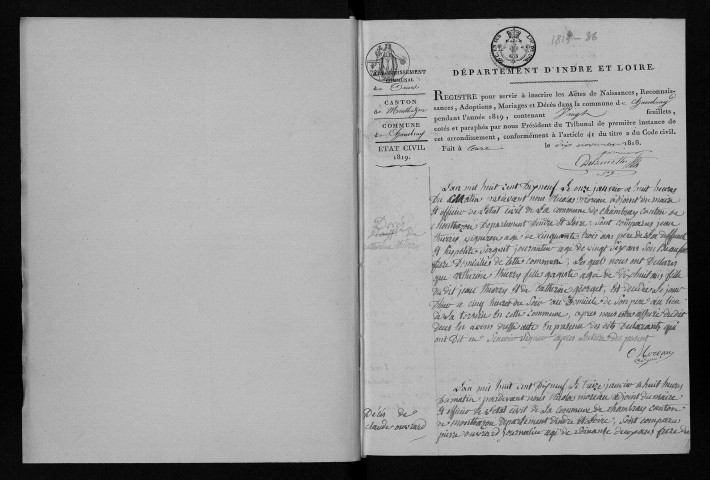 1819 - 26
DÉPARTEMENT D'INDRE ET LOIRE.
REGISTRE pour servir à inscrire les Actes de Naissances, Reconnais-
sances, Adoptions, Mariages et Décès dans la commune de Chambray
pendant l'année 1819, contenant Vingt feuillets,
cotés et paraphés par nous Président du Tribunal de première instance de
cet arrondissement, conformément à l'article 41 du titre 2 du Code civil.
Fait à Tours le dix novembre 1818.
ARRONDISSEMENT
COMMUNAL
de Tours
CANTON
de Montbazon
COMMUNE
de Chambray
ETAT CIVIL
1819.
Décès
L'an mil huit cent Dixneuf Le onze janvier a huit heures
Du Matin pardevant nous Nicolas moreau adjoint du maire
Et officier de l'état civil de la commune de chambray canton de
Montbazon Departement d'indre et Loire, Sont comparus jean
thierry agé de cinquante trois ans pere de la deffunte
Et hypolite journallier agé de vingt Six ans Son Beaufrere
Domiciliés de Cette commune, Les quels nous ont Declarés
que Catherine thierry fille agée de Dixhuit ans fille
du dit jean thierry Et de Catherine georget, Est decedée Ce jour
a cinq heures du Soir au Domicile de Son pere au lieu
de la En cette commune, apres nous estre assuré du dit
deces En avons dressé acte En presence des dits Declarants qui
ont Dit ne Scavoir Signer apres Lecture
Moreau
Décès de
Claude ouvrard
L'an mil huit cent Dixneuf Le treize janvier a huit heures
Du matin pardevant nous Nicolas moreau adjoint du maire
Et officier de l'état civil de la commune de chambray canton
de montbazon Departement d'indre et Loire, Sont comparus
pierre ouvrard journallier agé de Soixante deux ans frere